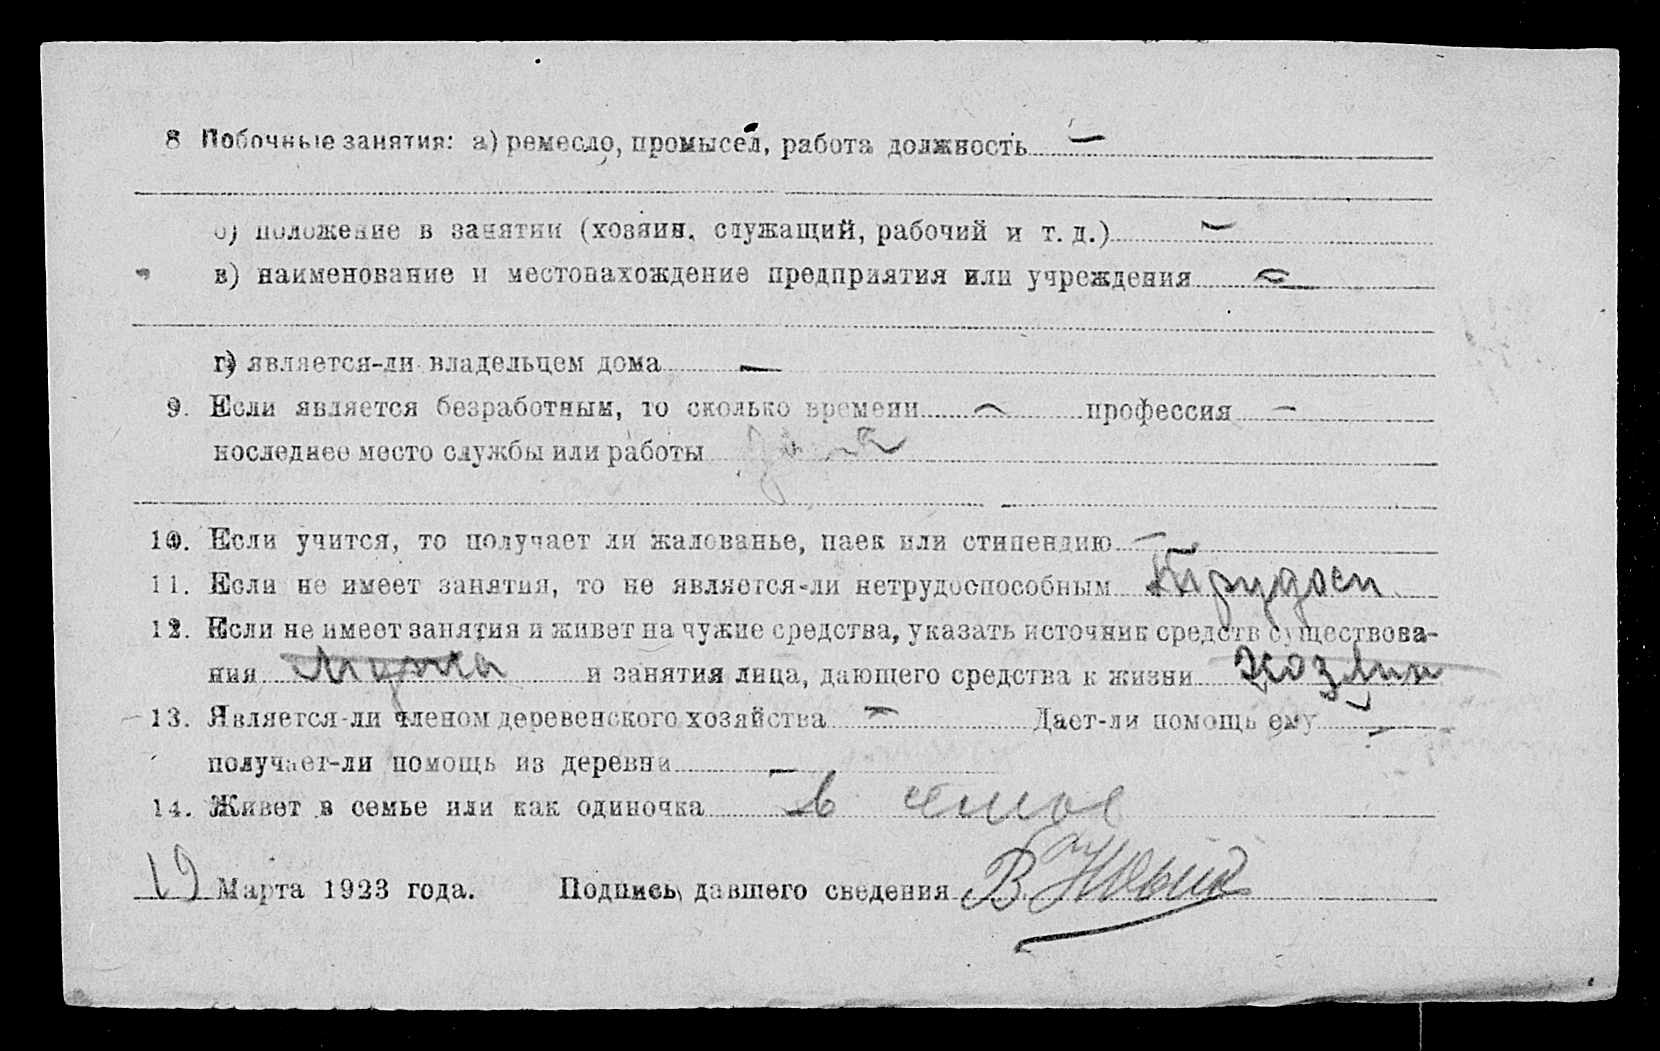 8 Побочные занятия: а) ремесло, промысел, работа должность —
б) положение в занятии (хозяин, служащий, рабочий и т. д.) —
в) наименование и местонахождение предприятия или учреждения —
г) является-ли владельцем дома —
9. Если является безработным, то сколько времени — профессия —
последнее место службы или работы
10. Если учится, то получает ли жалованье, паек или стипендию —
11. Если не имеет занятия, то не является-ли нетрудоспособным
12. Если не имеет занятия и живет на чужие средства, указать источник средств существова-
ния мужа и занятия лица, дающего средства к жизни
13. Является-ли членом деревенского хозяйства — Дает-ли помощь ему —
получает-ли помощь из деревни —
14. Живет в семье или как одиночка в семье
19 Марта 1923 года. Подпись, давшего сведения В.